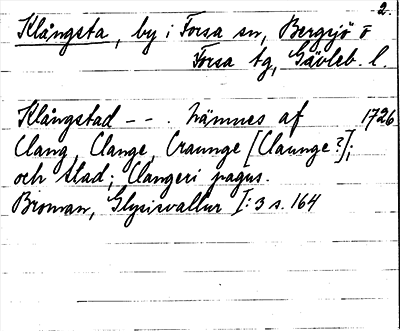 2.
Klångsta, by i Forsa sn, Bergsjö o
Forsa tg, Gävleb. l.
Klångstad - - . Nämnes af 1726
Clang, Clange, Craunge [Claunge?];
och stad; Clangeri pagus.
Broman, Glysisvallur I:3 s. 164